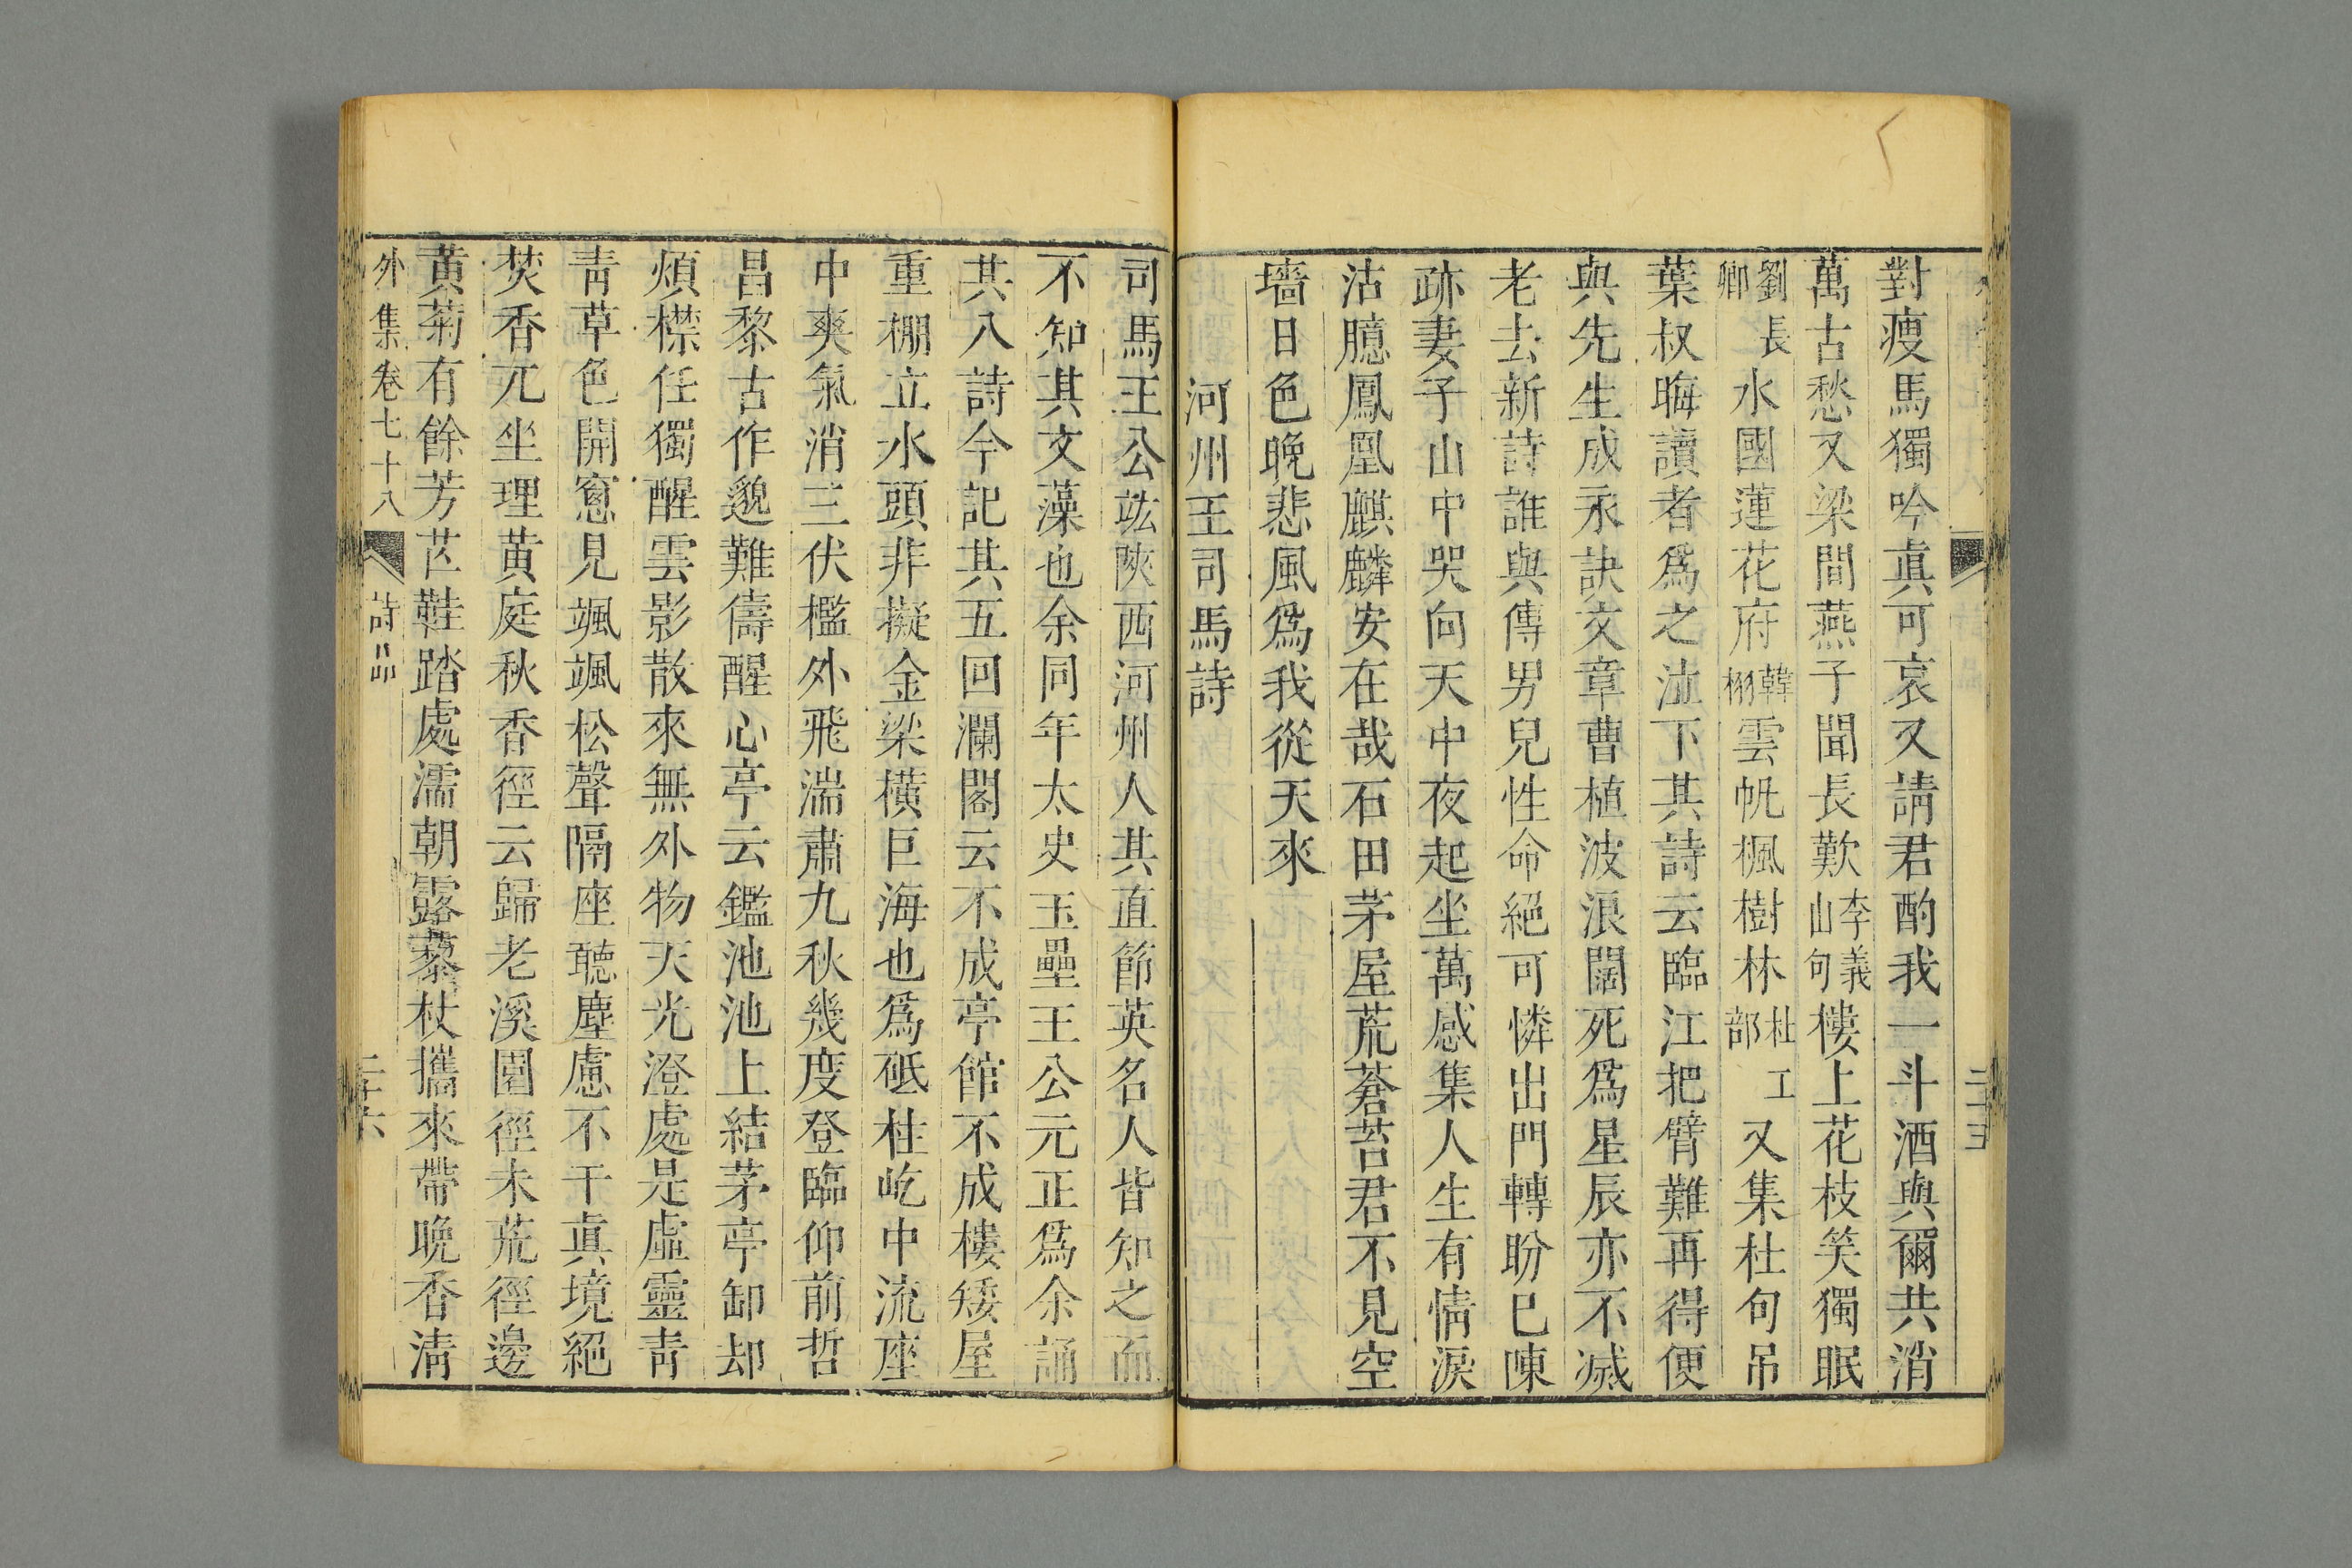 對瘦馬獨吟真可哀又請君酌我一斗酒與爾共消
萬古愁又梁間燕子聞長歎李義山句樓上花枝笑獨眠
劉長卿水國蓮花府韓翃雲帆楓樹林杜工部又集杜句吊
葉叔晦讀者爲之泣下其詩云臨江把臂難再得便
與先生成永訣文章曹植波浪闊死爲星辰亦不滅
老去新詩誰與傳男兒性命絕可憐出門轉盼已陳
跡妻子山中哭向天中夜起坐萬感集人生有情淚
沾臆鳳凰麒麟安在哉石田茅屋荒蒼苔君不見空
墻日色晚悲風爲我從天來
河州王司馬詩
司馬王公竑陝西河州人其直節英名人皆知之而
不知其文藻也余同年太史玉壘王公元正爲余誦
其入詩今記其五回瀾閣云不成亭館不成樓矮屋
重棚立水頭非擬金梁橫巨海也爲砥柱屹中流座
中爽氣消三伏檻外飛湍肅九秋幾度登臨仰前哲
昌黎古作邈難儔醒心亭云鑑池池上結茅亭卸却
煩襟任獨醒雲影散來無外物天光澄處是虛靈青
青草色開窓見颯颯松聲隔座聽塵慮不干真境絕
焚香兀坐理黃庭秋香徑云歸老溪園徑未荒徑邊
黃菊有餘芳芒鞋踏處濡朝露藜杖攜來帶晚香清
外集卷七十八
詩品
二十六